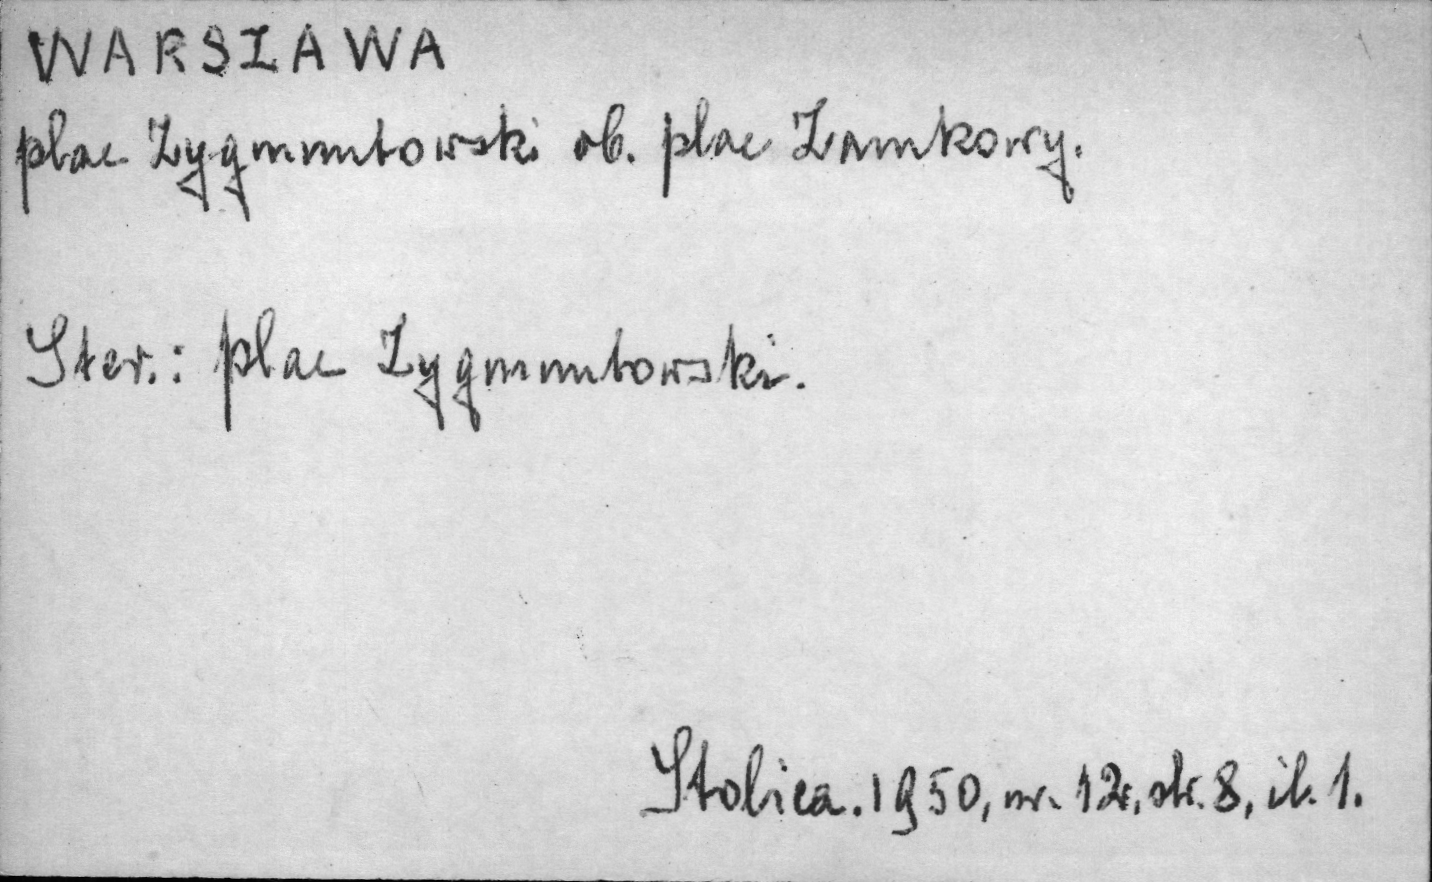 WARSZAWA
plac Zygmuntowski ob. plac Zamkowy.
Ster.: plac Zygmuntowski.
Stolica. 1950, nr. 12, str. 8, il. 1.